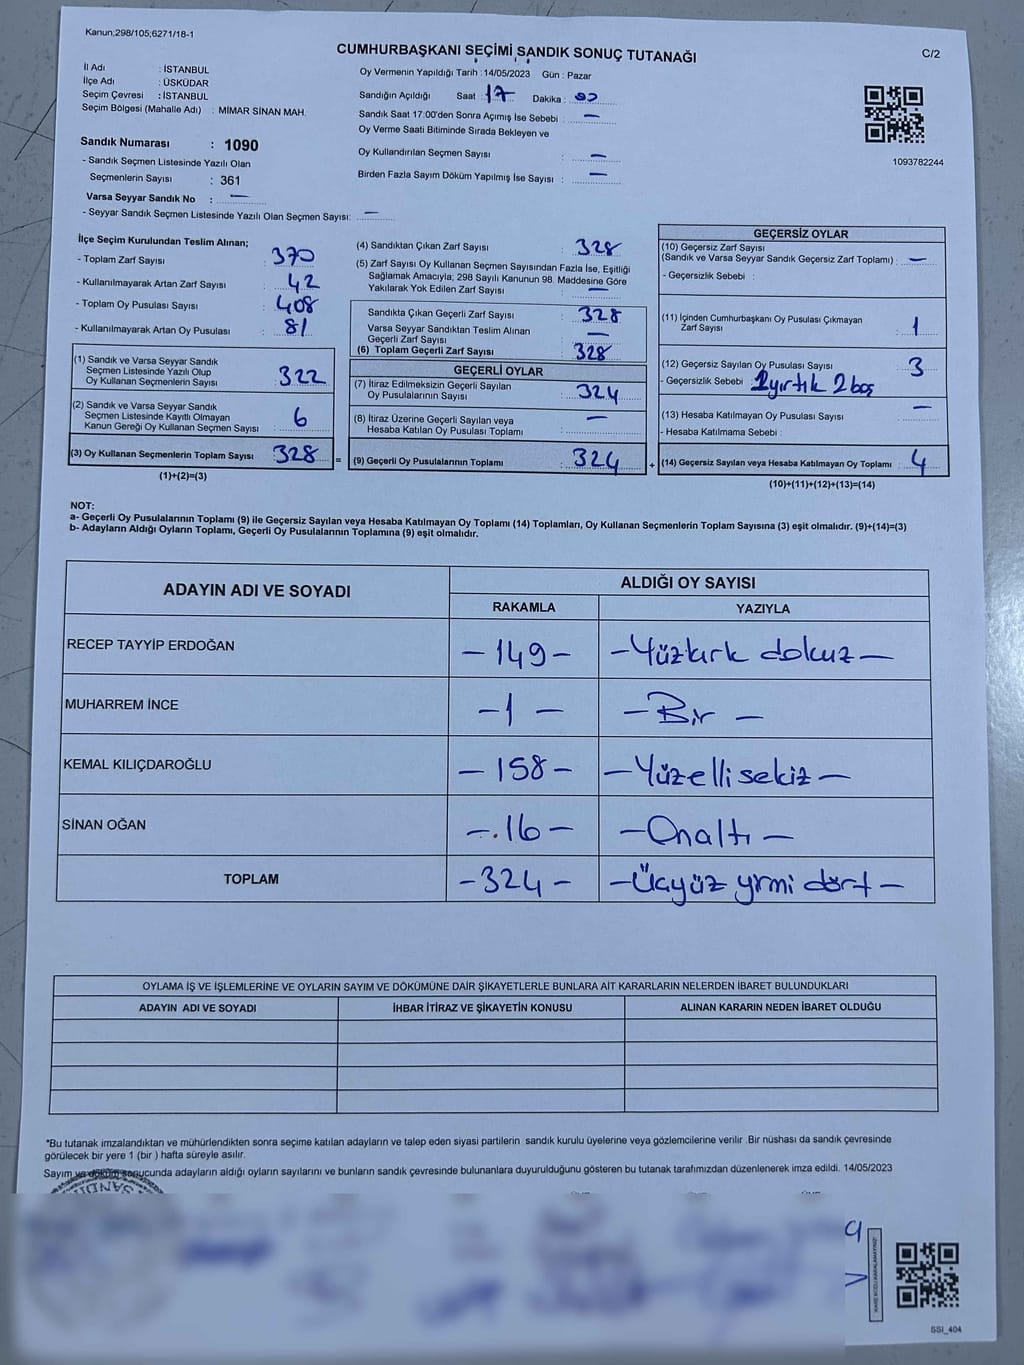 Kanun;298/105;6271/18-1
CUMHURBAŞKANI SEÇİMİ SANDIK SONUÇ TUTANAĞI
C/2
İl Adı : İSTANBUL
İlçe Adı : ÜSKÜDAR
Seçim Çevresi : İSTANBUL
Seçim Bölgesi (Mahalle Adı) : MİMAR SİNAN MAH.
Sandık Numarası : 1090
- Sandık Seçmen Listesinde Yazılı Olan
Seçmenlerin Sayısı : 361
Varsa Seyyar Sandık No : —
- Seyyar Sandık Seçmen Listesinde Yazılı Olan Seçmen Sayısı: —
Oy Vermenin Yapıldığı Tarih : 14/05/2023 Gün : Pazar
Sandığın Açıldığı Saat 17 Dakika :
Sandık Saat 17:00'den Sonra Açımış İse Sebebi : —
Oy Verme Saati Bitiminde Sırada Bekleyen ve
Oy Kullandırılan Seçmen Sayısı : —
Birden Fazla Sayım Döküm Yapılmış İse Sayısı : —
1093782244
İlçe Seçim Kurulundan Teslim Alınan;
- Toplam Zarf Sayısı : 370
- Kullanılmayarak Artan Zarf Sayısı : 42
- Toplam Oy Pusulası Sayısı : 408
- Kullanılmayarak Artan Oy Pusulası : 81
(1) Sandık ve Varsa Seyyar Sandık
Seçmen Listesinde Yazılı Olup
Oy Kullanan Seçmenlerin Sayısı : 322
(2) Sandık ve Varsa Seyyar Sandık
Seçmen Listesinde Kayıtlı Olmayan
Kanun Gereği Oy Kullanan Seçmen Sayısı : 6
(3) Oy Kullanan Seçmenlerin Toplam Sayısı : 328
(1)+(2)=(3)
=
(4) Sandıktan Çıkan Zarf Sayısı : 328
(5) Zarf Sayısı Oy Kullanan Seçmen Sayısından Fazla İse, Eşitliği
Sağlamak Amacıyla; 298 Sayılı Kanunun 98. Maddesine Göre
Yakılarak Yok Edilen Zarf Sayısı : —
Sandıkta Çıkan Geçerli Zarf Sayısı : 328
Varsa Seyyar Sandıktan Teslim Alınan
Geçerli Zarf Sayısı : —
(6) Toplam Geçerli Zarf Sayısı : 328
GEÇERLİ OYLAR
(7) İtiraz Edilmeksizin Geçerli Sayılan
Oy Pusulalarının Sayısı : 324
(8) İtiraz Üzerine Geçerli Sayılan veya
Hesaba Katılan Oy Pusulası Toplamı : —
(9) Geçerli Oy Pusulalarının Toplamı : 324
+
GEÇERSİZ OYLAR
(10) Geçersiz Zarf Sayısı
(Sandık ve Varsa Seyyar Sandık Geçersiz Zarf Toplamı) : —
- Geçersizlik Sebebi :
(11) İçinden Cumhurbaşkanı Oy Pusulası Çıkmayan
Zarf Sayısı : 1
(12) Geçersiz Sayılan Oy Pusulası Sayısı : 3
- Geçersizlik Sebebi : 1 yırtık 2 boş
(13) Hesaba Katılmayan Oy Pusulası Sayısı : —
- Hesaba Katılmama Sebebi :
(14) Geçersiz Sayılan veya Hesaba Katılmayan Oy Toplamı : 4
(10)+(11)+(12)+(13)=(14)
NOT:
a- Geçerli Oy Pusulalarının Toplamı (9) ile Geçersiz Sayılan veya Hesaba Katılmayan Oy Toplamı (14) Toplamları, Oy Kullanan Seçmenlerin Toplam Sayısına (3) eşit olmalıdır. (9)+(14)=(3)
b- Adayların Aldığı Oyların Toplamı, Geçerli Oy Pusulalarının Toplamına (9) eşit olmalıdır.
ADAYIN ADI VE SOYADI
ALDIĞI OY SAYISI
RAKAMLA YAZIYLA
RECEP TAYYİP ERDOĞAN – 149 – – Yüzkırk dokuz –
MUHARREM İNCE – 1 – – Bir –
KEMAL KILIÇDAROĞLU – 158 – – Yüzelli sekiz –
SİNAN OĞAN – 16 – – Onaltı –
TOPLAM – 324 – – Üçyüz yirmi dört –
OYLAMA İŞ VE İŞLEMLERİNE VE OYLARIN SAYIM VE DÖKÜMÜNE DAİR ŞİKAYETLERLE BUNLARA AİT KARARLARIN NELERDEN İBARET BULUNDUKLARI
ADAYIN ADI VE SOYADI İHBAR İTİRAZ VE ŞİKAYETİN KONUSU ALINAN KARARIN NEDEN İBARET OLDUĞU
*Bu tutanak imzalandıktan ve mühürlendikten sonra seçime katılan adayların ve talep eden siyasi partilerin sandık kurulu üyelerine veya gözlemcilerine verilir .Bir nüshası da sandık çevresinde
görülecek bir yere 1 (bir ) hafta süreyle asılır.
Sayım ve döküm sonucunda adayların aldığı oyların sayılarını ve bunların sandık çevresinde bulunanlara duyurulduğunu gösteren bu tutanak tarafımızdan düzenlenerek imza edildi. 14/05/2023
SSI_404